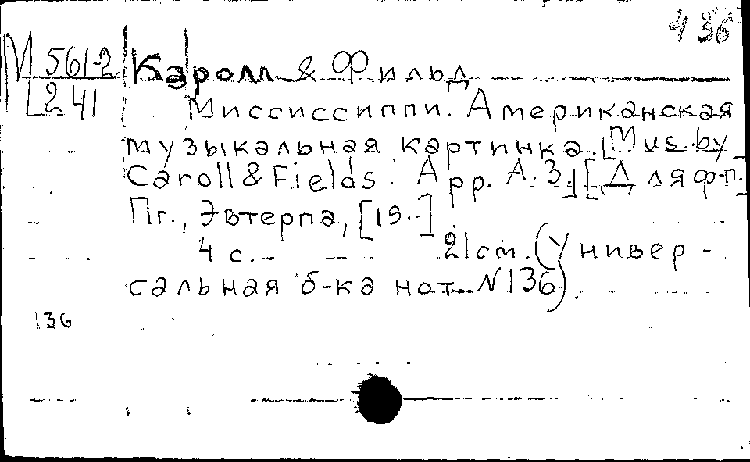 436
М 561-2
Л 241
Кэролл & Фильд
Миссиссиппи. Американская
музыкальная картинка. [Mus. by
Caroll & Fields. Арр. А. З.] [Для ф.-п.]
Пг., Эвтерпа, [19..]
4 с. 21 см. (Универ-
сальная б-ка нот. № 136).
136